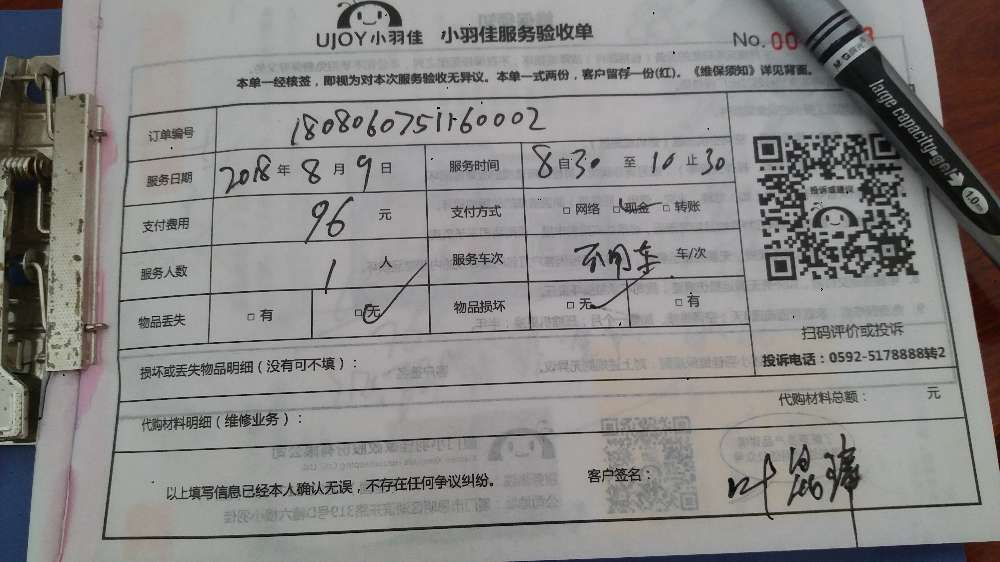 UJOY小羽佳 小羽佳服务验收单 No.00 3
本单一经核签,即视为对本次服务验收无异议。本单一式两份,客户留存一份(红)。《维保须知》详见背面。
订单编号 1808060751160002
服务日期 2018年8月9日 服务时间 8自30至10止30
支付费用 96元 支付方式 □网络 □现金 □转账
服务人数 1人 服务车次 不用车 车/次
物品丢失 □有 □无 物品损坏 □无 □有
投诉或建议
扫码评价或投诉
投诉电话:0592-5178888转2
损坏或丢失物品明细(没有可不填):
代购材料明细(维修业务): 代购材料总额: 元
以上填写信息已经本人确认无误,不存在任何争议纠纷。 客户签名:
M&G
large capacity gel 1.0